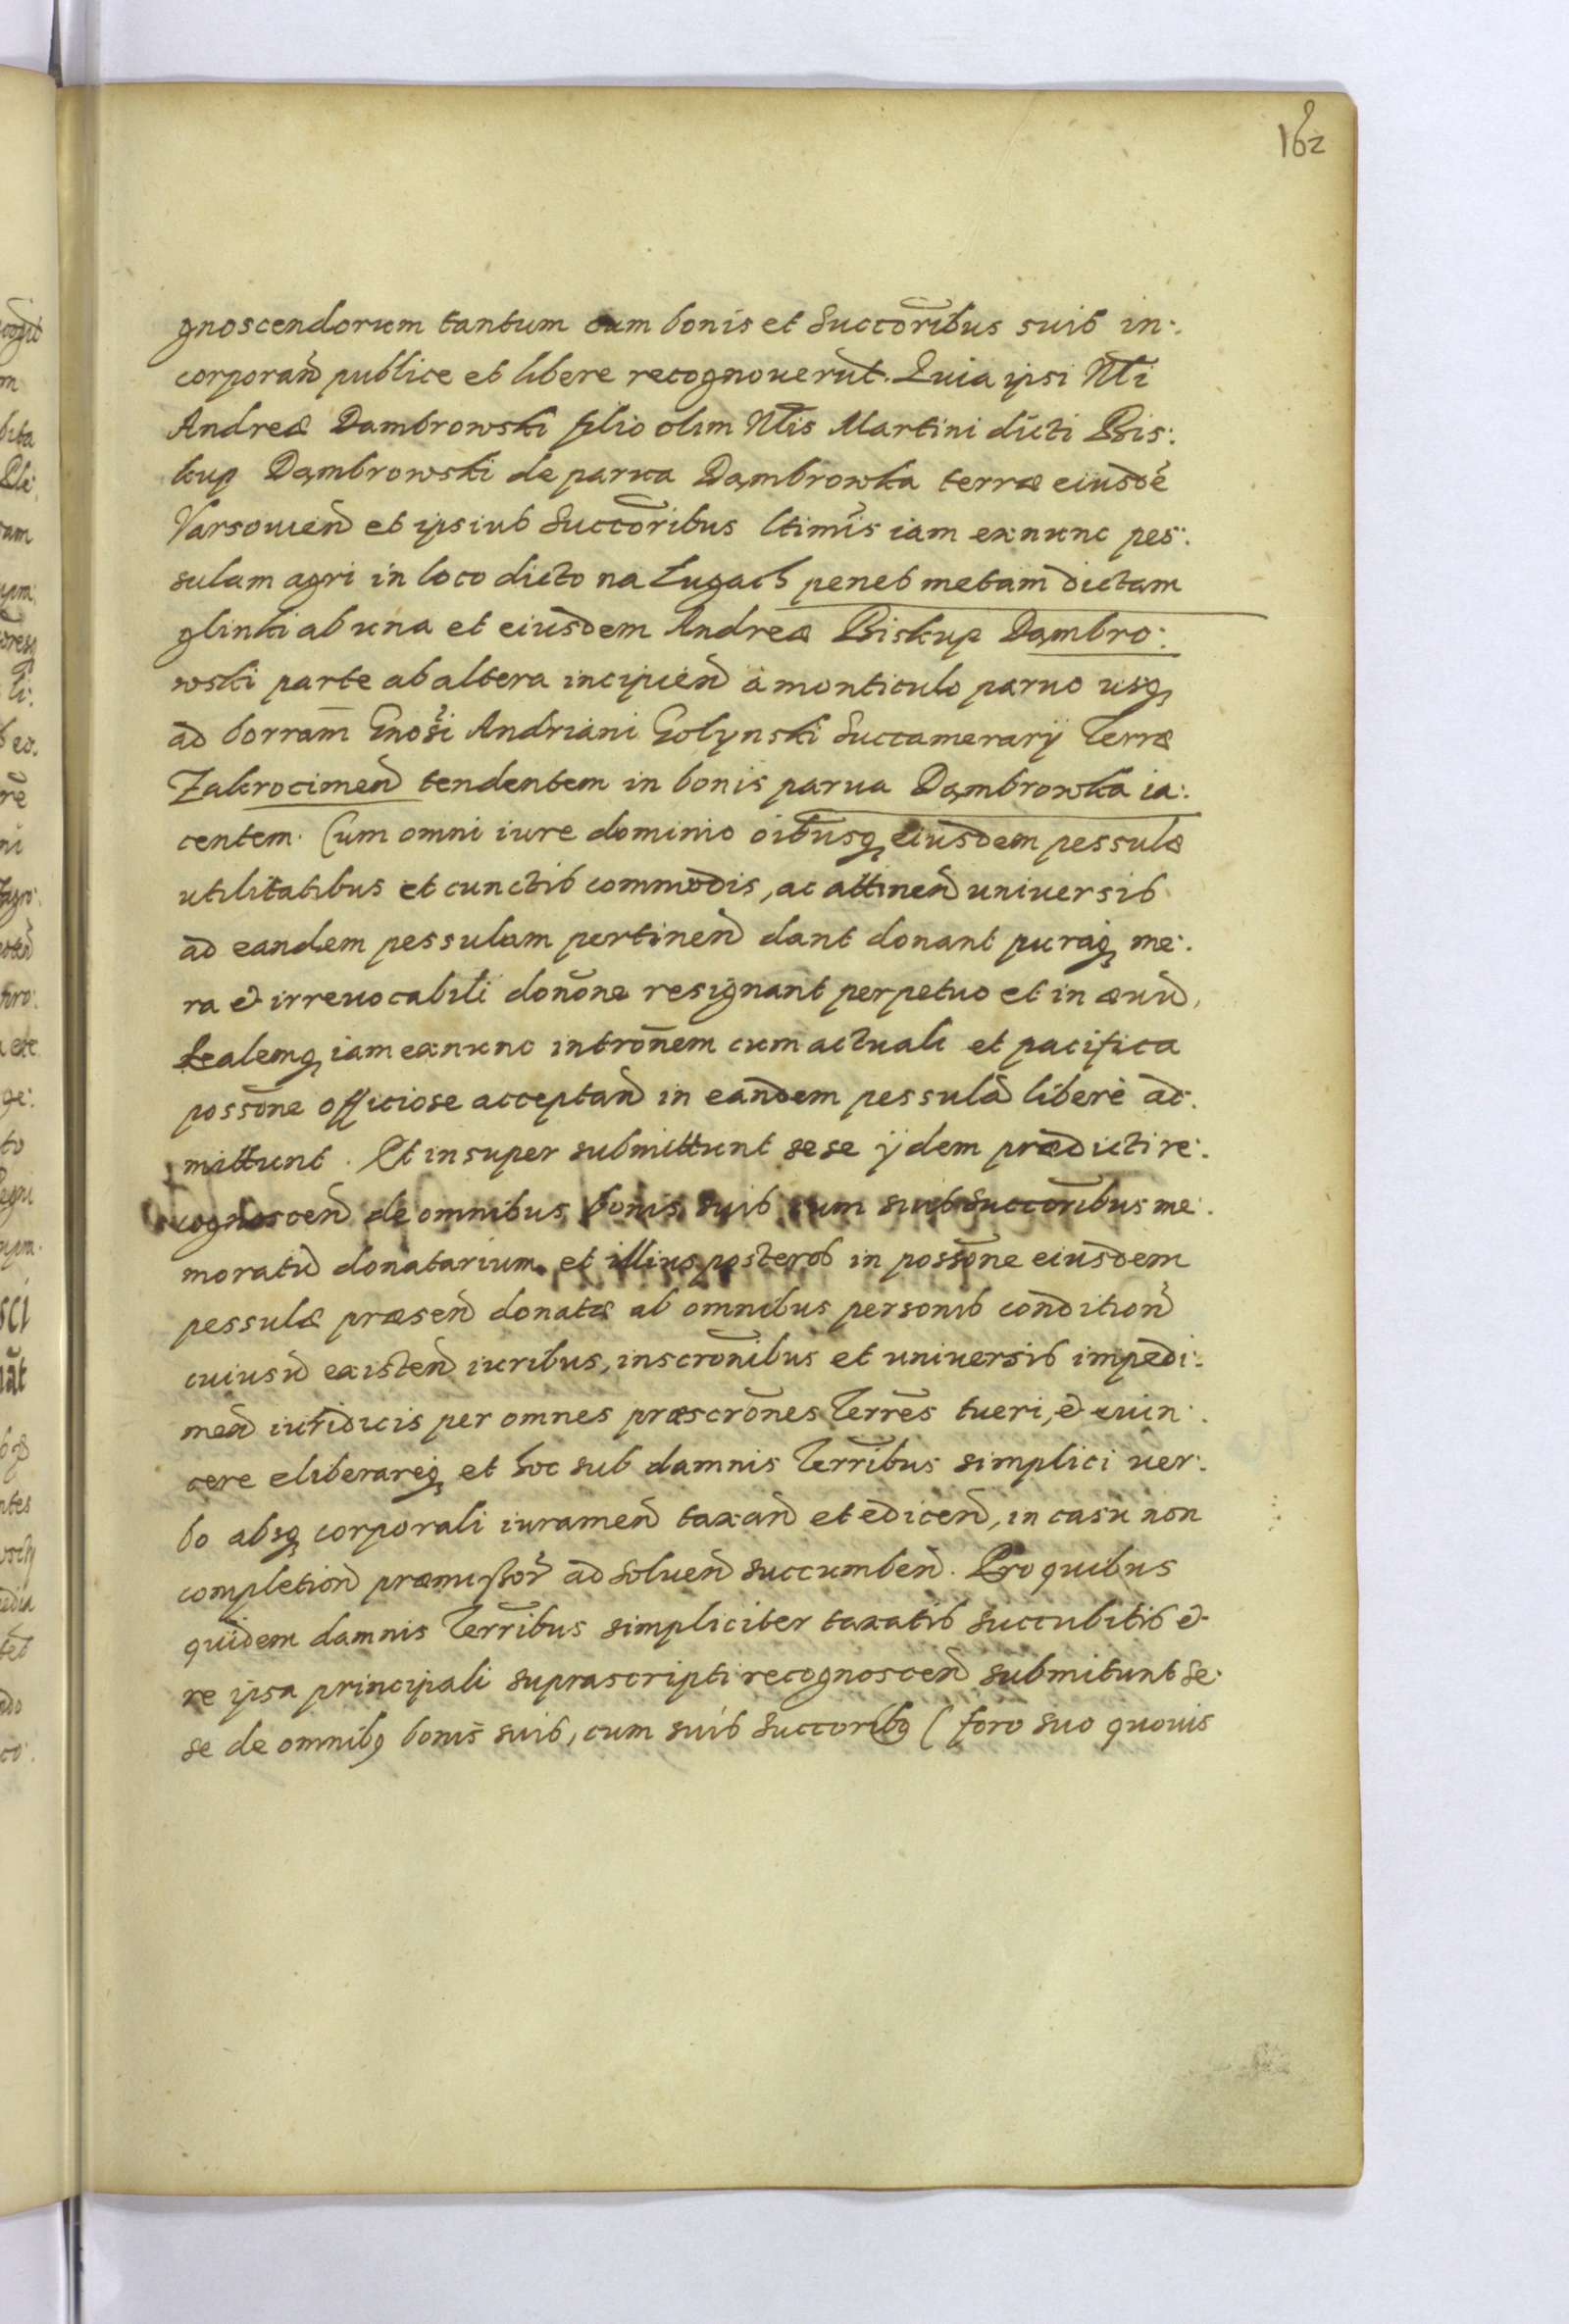 162
gnoscendorum tantum cum bonis et Succoribus suis in:
corporan̄ publice et libere recognouerūt. Quia ipsi Nłi
Andreæ Dąmbrowski filio olim Nłis Martini dicti Bis:
kup Dąmbrowski de parua Dąmbrowka terræ eiusdē
Varsouien̄ et ipsius Succōribus ltimīs iam exnunc pes:
sulam agri in loco dicto na Ługach penes metam dictam
glinki ab una et eiusdem Andreæ Biskup Dąmbro:
wski parte ab altera incipien̄ à monticulo paruo usq
ad borram Gnosi Andriani Golynski Succamerarij Terræ
Zakrocimen̄ tendentem in bonis parua Dąmbrowka ia:
centem. Cum omni iure dominio oībusq eiusdem pessulæ
utilitatibus et cunctis commodis, ac attinen̄ uniuersis
ad eandem pessulam pertinen̄ dant donant puraq me:
ra & irreuocabili donōne resignant perpetuo et in æuū,
Realemq iam exnunc intrōnem cum actuali et pacifica
possōne officiose acceptan̄ in eandem pessulā liberè ad:
mittunt. Et insuper submittunt sese ijdem prædicti re:
cognoscen̄ de omnibus bonis suis cum suis Succoribus me:
moratū donatarium et illius posteros in possōne eiusdem
pessulæ præsen̄ donatæ ab omnibus personis condition̄
cuiusū existen̄ iuribus, inscrōnibus et uniuersis impedi:
men̄ iuridicis per omnes præscrōnes Terrēs tueri, & euin:
cere eliberareq et hoc sub damnis Terrībus simplici uer:
bo absq corporali iuramen̄ taxan̄ et edicen̄, in casu non
completion̄ præmissor̄ ad soluen̄ succumben̄. Pro quibus
quidem damnis Terrībus simpliciter taxatis succubitis &
re ipsa principali suprascripti recognoscen̄ submitunt se:
se de omnibq bonis suis, cum suis Succoribq (foro suo quouis